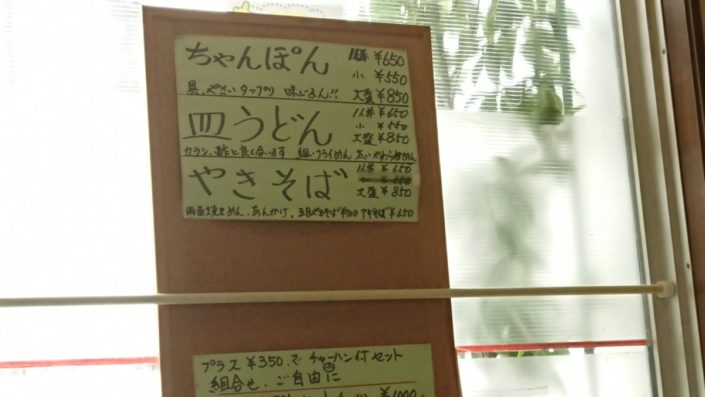 ちゃんぽん 1人前 ¥650
小 ¥550
具、やさいタップリ 味じまん!! 大盛 ¥850
皿うどん 1人前 ¥650
小 ¥550
大盛 ¥850
カラシ、酢と良く合います 細いフライめん 太いやわらかめん
やきそば 1人前 ¥650
大盛 ¥850
両面焼きめん、あんかけ、
プラス ¥350.で チャーハン付セット
組合せ.ご自由に
¥1000